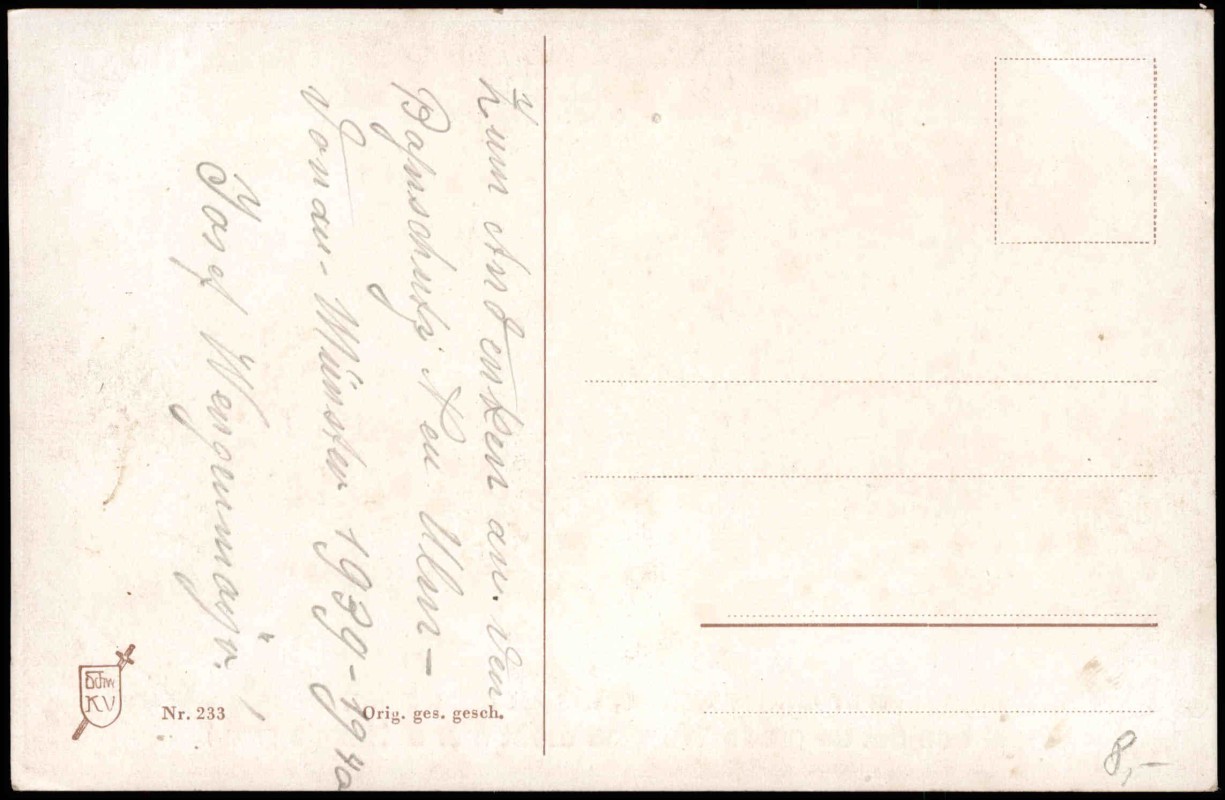 Zum Andenken an. den
Bahnschutz Neu Ulm -
Donau - Münster 1939-1940
Josef
SChw
KV
Nr. 233
Orig. ges. gesch.
8,-